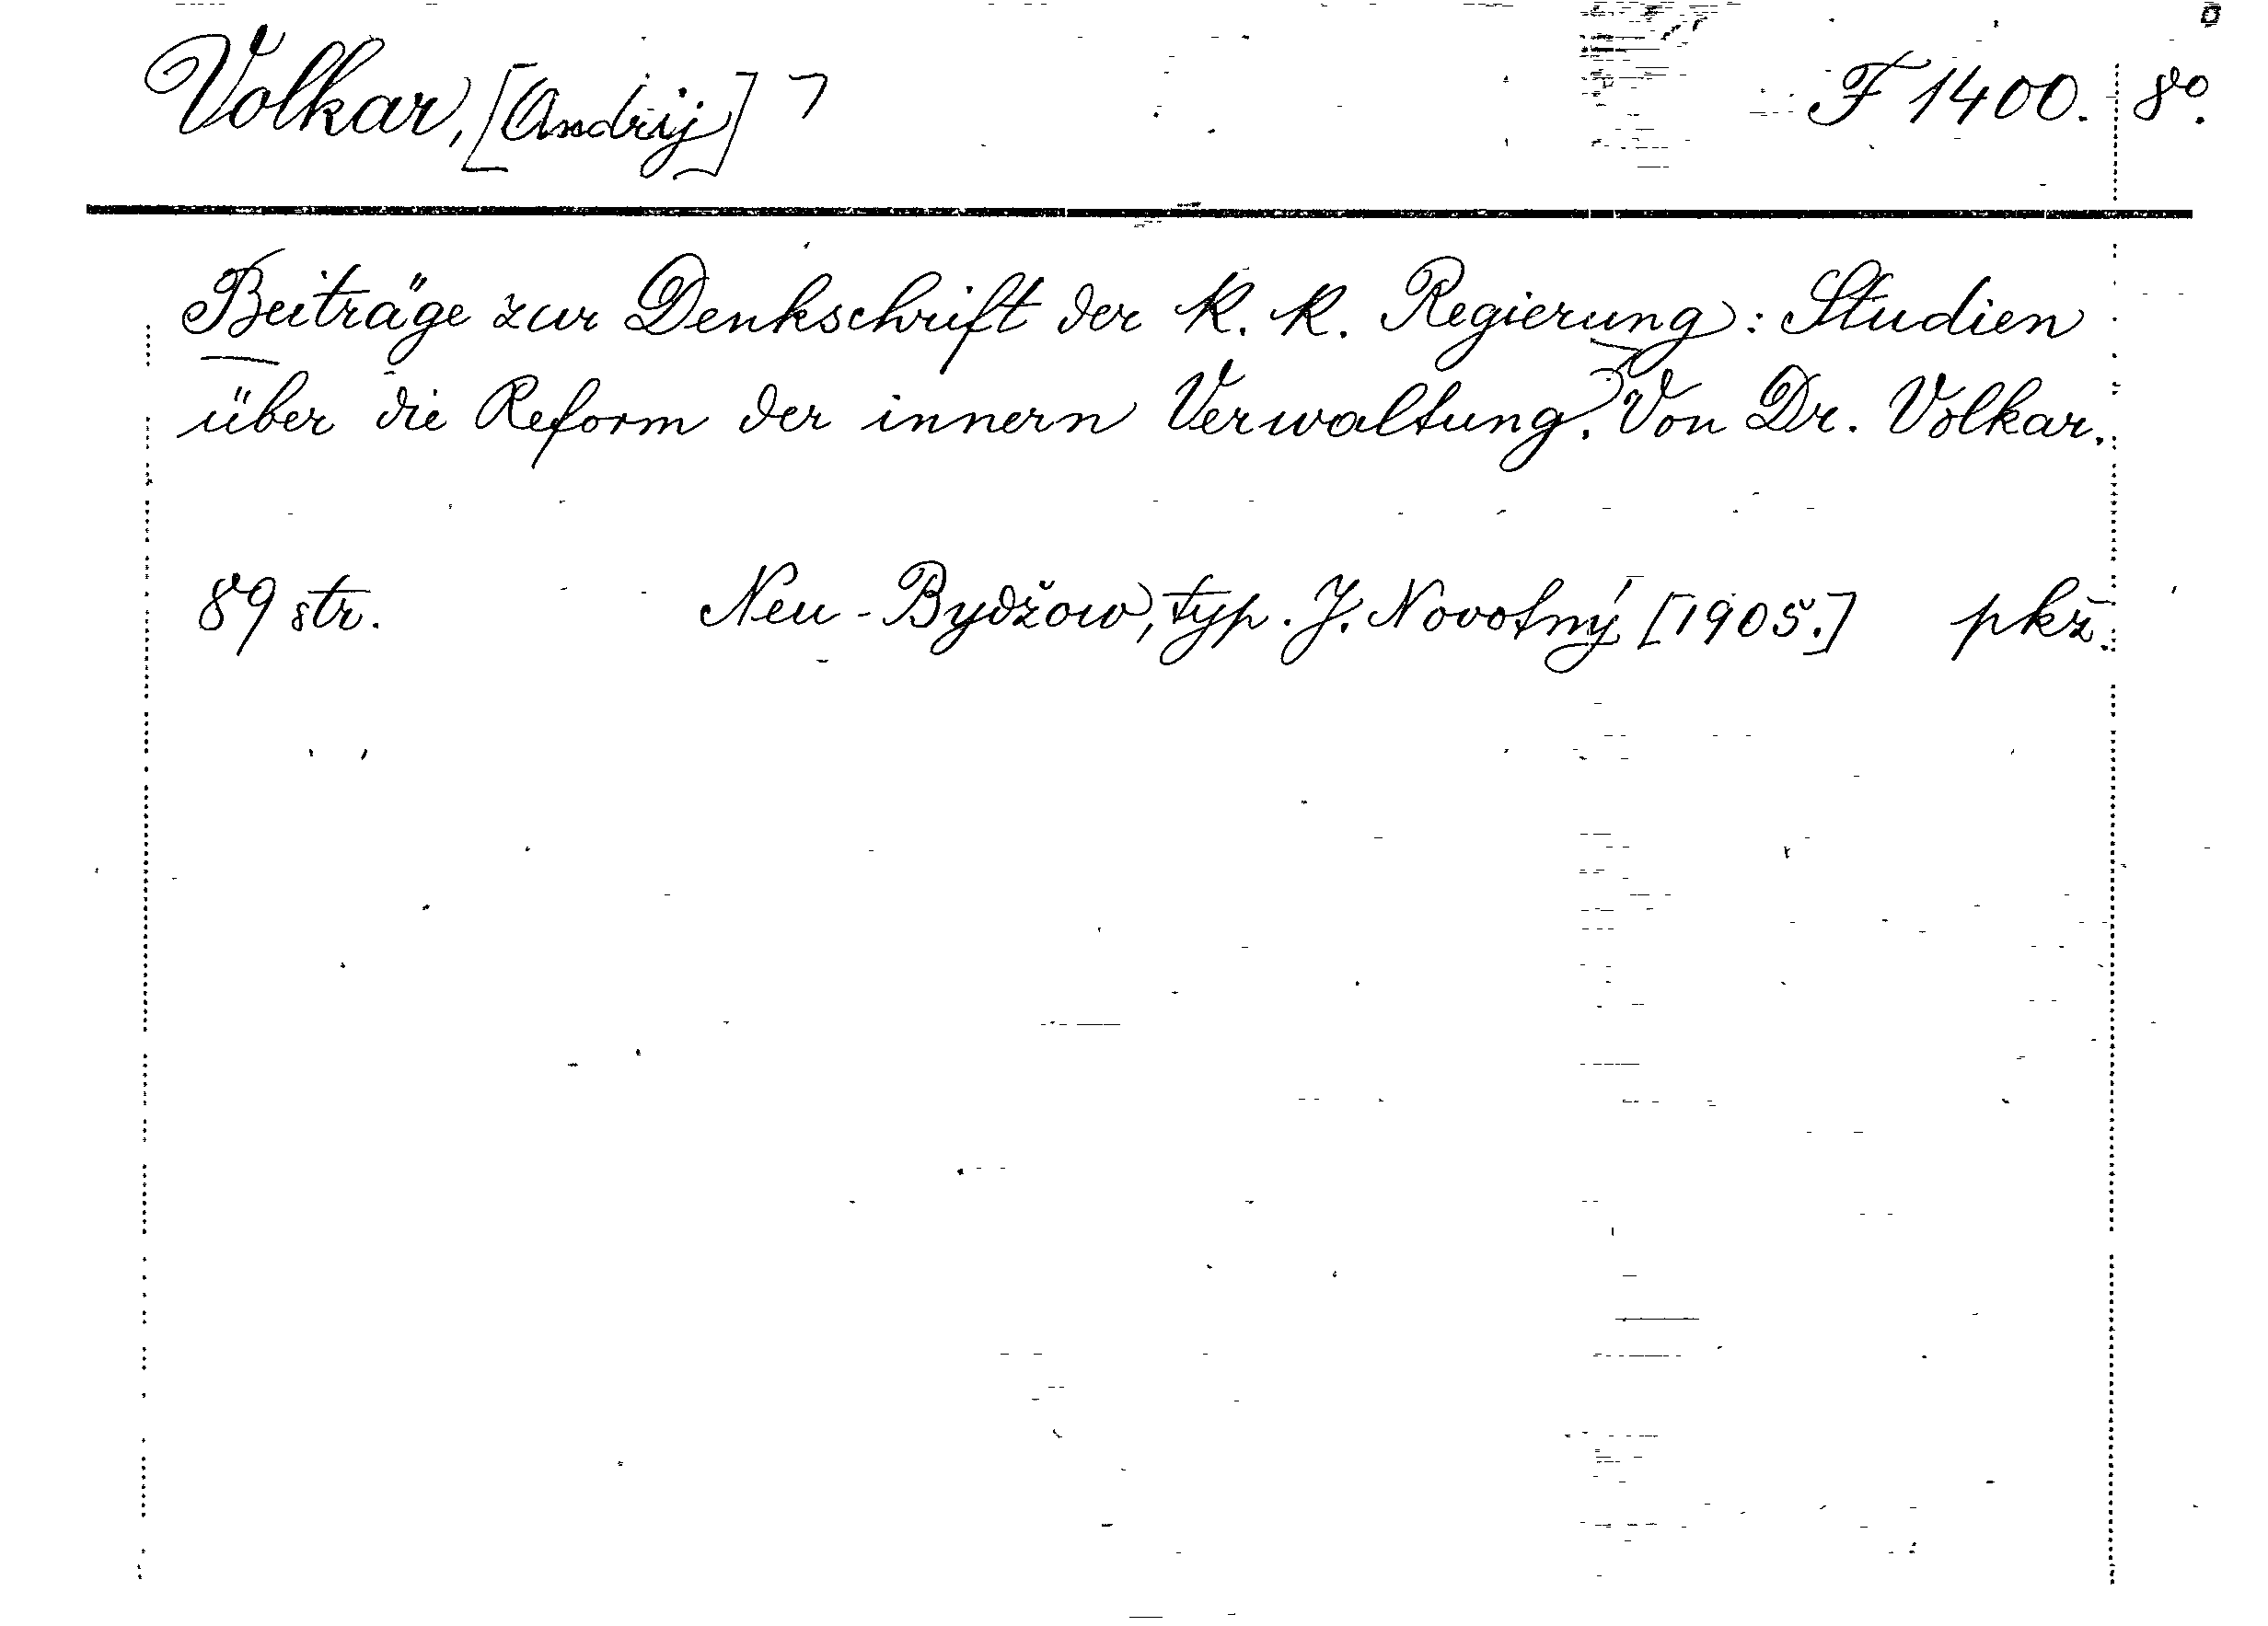 Volkar, [Andrij] F 1400. 8º.
Beiträge zur Denkschrift der K. K. Regierung: Studien
über die Reform der innern Verwaltung. Von Dr. Volkar.
89 str. Neu-Bydžow, typ. J. Novotný [1905.] pkž.